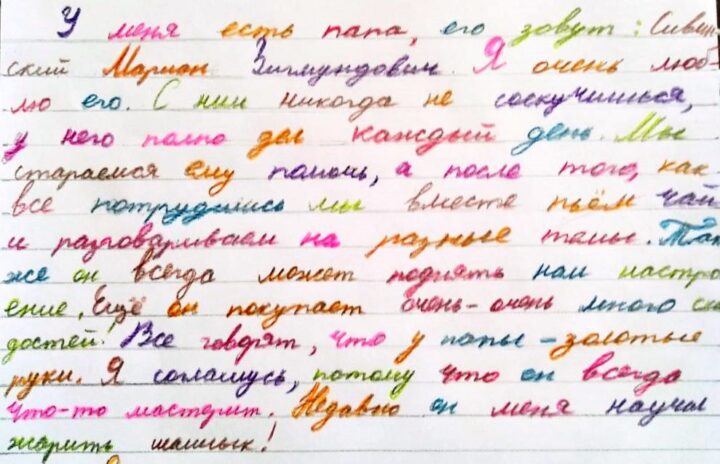 У меня есть папа, его зовут: Сивин-
ский Мариан Зигмундович. Я очень люб-
лю его. С ним никогда не соскучишься,
у него полно дел каждый день. Мы
стараемся ему помочь, а после того, как
все потрудились мы вместе пьём чай
и разговариваем на разные темы. Так
же он всегда может поднять нам настро
ение. Ещё он покупает очень-очень много сла
достей! Все говорят, что у папы - золотые
руки. Я соглашусь, потому что он всегда
что-то мастерит. Недавно он меня научил
жарить шашлык!